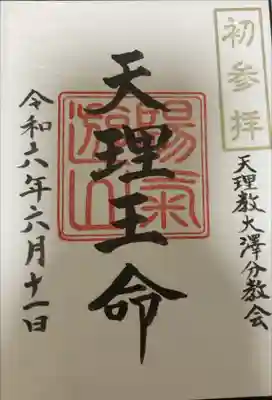 初参拝
天理教大澤分教会
天理王命
陽氣遊山
令和六年六月十一日